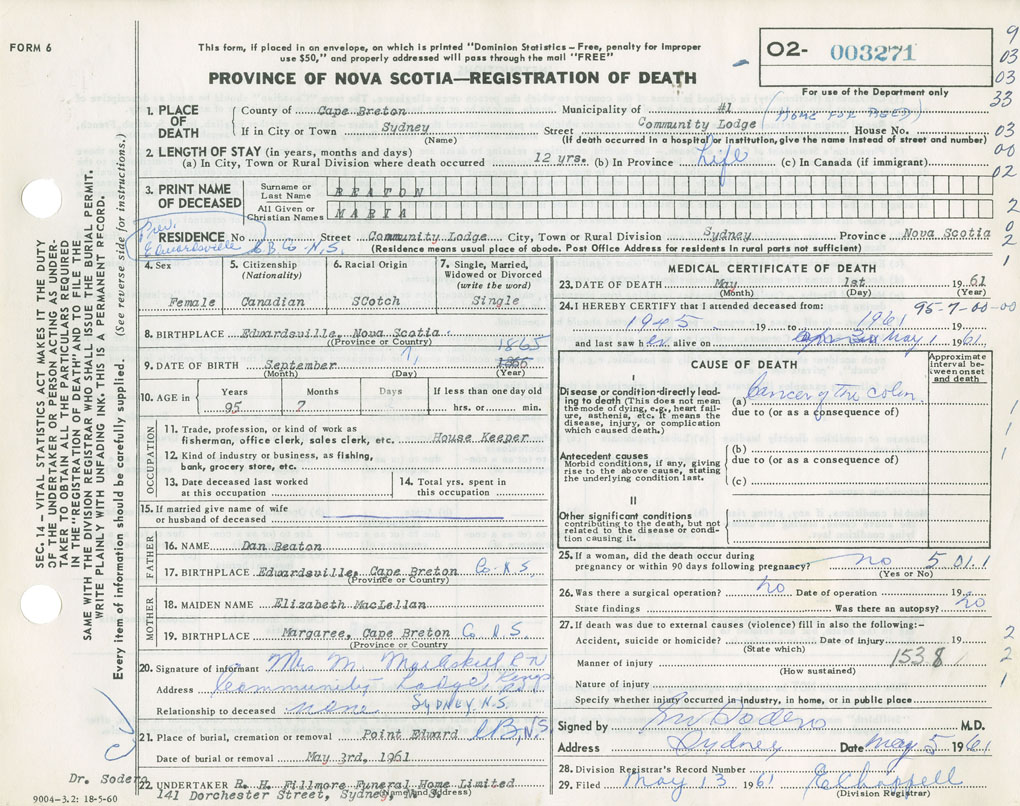 FORM 6
This form, if placed in an envelope, on which is printed "Dominion Statistics – Free, penalty for improper
use $50," and properly addressed will pass through the mail "FREE"
PROVINCE OF NOVA SCOTIA—REGISTRATION OF DEATH
O2- 003271
For use of the Department only
9
03
03
33
03
00
02
2
0
2
1
1. PLACE OF DEATH
County of Cape Breton Municipality of #1 (Home for Aged)
If in City or Town Sydney Street Community Lodge House No.
(Name) (If death occurred in a hospital or institution, give the name instead of street and number)
2. LENGTH OF STAY (in years, months and days)
(a) In City, Town or Rural Division where death occurred 12 yrs. (b) In Province Life (c) In Canada (if immigrant)
3. PRINT NAME OF DECEASED
Surname or Last Name BEATON
All Given or Christian Names MARIA
Prev. Edwardsville C.B. Co. N.S.
RESIDENCE No Street Community Lodge City, Town or Rural Division Sydney Province Nova Scotia
(Residence means usual place of abode. Post Office Address for residents in rural parts not sufficient)
4. Sex
Female
5. Citizenship
(Nationality)
Canadian
6. Racial Origin
SCotch
7. Single, Married,
Widowed or Divorced
(write the word)
Single
8. BIRTHPLACE Edwardsville, Nova Scotia
(Province or Country)
9. DATE OF BIRTH September 1 1865 1866
(Month) (Day) (Year)
10. AGE in
Years
95
Months
7
Days
If less than one day old
hrs. or min.
OCCUPATION
11. Trade, profession, or kind of work as
fisherman, office clerk, sales clerk, etc. House Keeper
12. Kind of industry or business, as fishing,
bank, grocery store, etc.
13. Date deceased last worked
at this occupation
14. Total yrs. spent in
this occupation
15. If married give name of wife
or husband of deceased
FATHER
16. NAME Dan Beaton
17. BIRTHPLACE Edwardsville, Cape Breton Co. N.S.
(Province or Country)
MOTHER
18. MAIDEN NAME Elizabeth MacLellan
19. BIRTHPLACE Margaree, Cape Breton Co. N.S.
(Province or Country)
20. Signature of informant Mrs M. R N
Address Community Lodge, Kings
Relationship to deceased none SYDNEY, N.S.
21. Place of burial, cremation or removal Point Edward CB, N.S.
Date of burial or removal May 3rd, 1961
22. UNDERTAKER R. H. Fillmore Funeral Home Limited
141 Dorchester Street, Sydney, N. S.
(Name and Address)
Dr. Sodero
9004–3.2: 18-5-60
MEDICAL CERTIFICATE OF DEATH
23. DATE OF DEATH May 1st 19 61
(Month) (Day) (Year)
24. I HEREBY CERTIFY that I attended deceased from: 95-7-00-00
1945 19 to 1961 19
and last saw her alive on May 1 1961
CAUSE OF DEATH
Approximate
interval be-
tween onset
and death
I
Disease or condition directly lead-
ing to death (This does not mean
the mode of dying, e.g., heart fail-
ure, asthenia, etc. It means the
disease, injury, or complication
which caused death.)
(a) Cancer of the colon
due to (or as a consequence of)
1
1
1
Antecedent causes
Morbid conditions, if any, giving
rise to the above cause, stating
the underlying condition last.
(b)
due to (or as a consequence of)
(c)
II
Other significant conditions
contributing to the death, but not
related to the disease or condi-
tion causing it.
25. If a woman, did the death occur during
pregnancy or within 90 days following pregnancy? no 5 01.1
(Yes or No)
26. Was there a surgical operation? no Date of operation 19
State findings Was there an autopsy? no
27. If death was due to external causes (violence) fill in also the following:–
Accident, suicide or homicide? Date of injury 19
(State which)
Manner of injury 153.8
(How sustained)
Nature of injury
Specify whether injury occurred in industry, in home, or in public place
2
2
1
Signed by Sodero M.D.
Address Sydney Date May 5 1961
28. Division Registrar's Record Number
29. Filed May 13 1961
(Division Registrar)
SEC. 14 – VITAL STATISTICS ACT MAKES IT THE DUTY
OF THE UNDERTAKER OR PERSON ACTING AS UNDER-
TAKER TO OBTAIN ALL THE PARTICULARS REQUIRED
IN THE "REGISTRATION OF DEATH" AND TO FILE THE
SAME WITH THE DIVISION REGISTRAR WHO SHALL ISSUE THE BURIAL PERMIT.
WRITE PLAINLY WITH UNFADING INK. THIS IS A PERMANENT RECORD.
Every item of information should be carefully supplied. (See reverse side for instructions.)